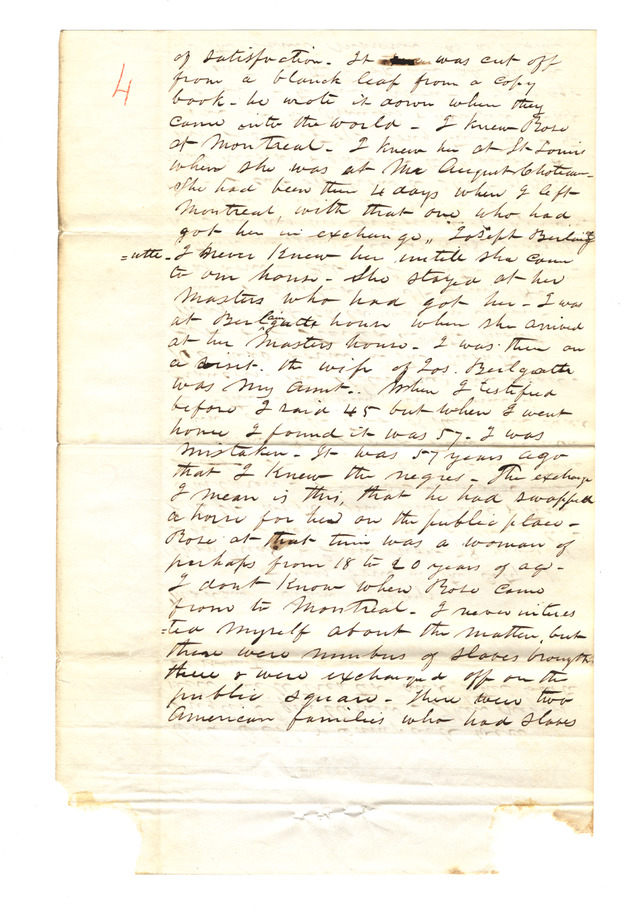 4
of satisfaction - It was cut off
from a blanck leaf from a copy
book - he wrote it down when they
came into the world - I knew Rose
at Montreal - I knew her at St Louis
when she was at Mr August Choteau -
She had been then 4 days when I left
Montreal, with that one who had
got her in exchange, Joseph Beulaig
=utte - I never knew her untile she came
to our house - She stayed at her
Masters who had got her - I was
at house when she arrived
at her Masters house - I was then on
a visit. the wife of Jos.
was My Aunt. When I testified
before I said 45 but when I went
home I found it was 57 - I was
mistaken - It was 57 years ago
that I knew the negres - The exchange
I mean is this, that he had swapped
a horse for her on the public place -
Rose at that time was a woman of
perhaps from 18 to 20 years of age -
I dont know when Rose came
from to Montreal - I never interes
=ted myself about the matter, but
there were numbers of slaves brought
there & were exchanged off on the
public square - There were two
American families who had slaves